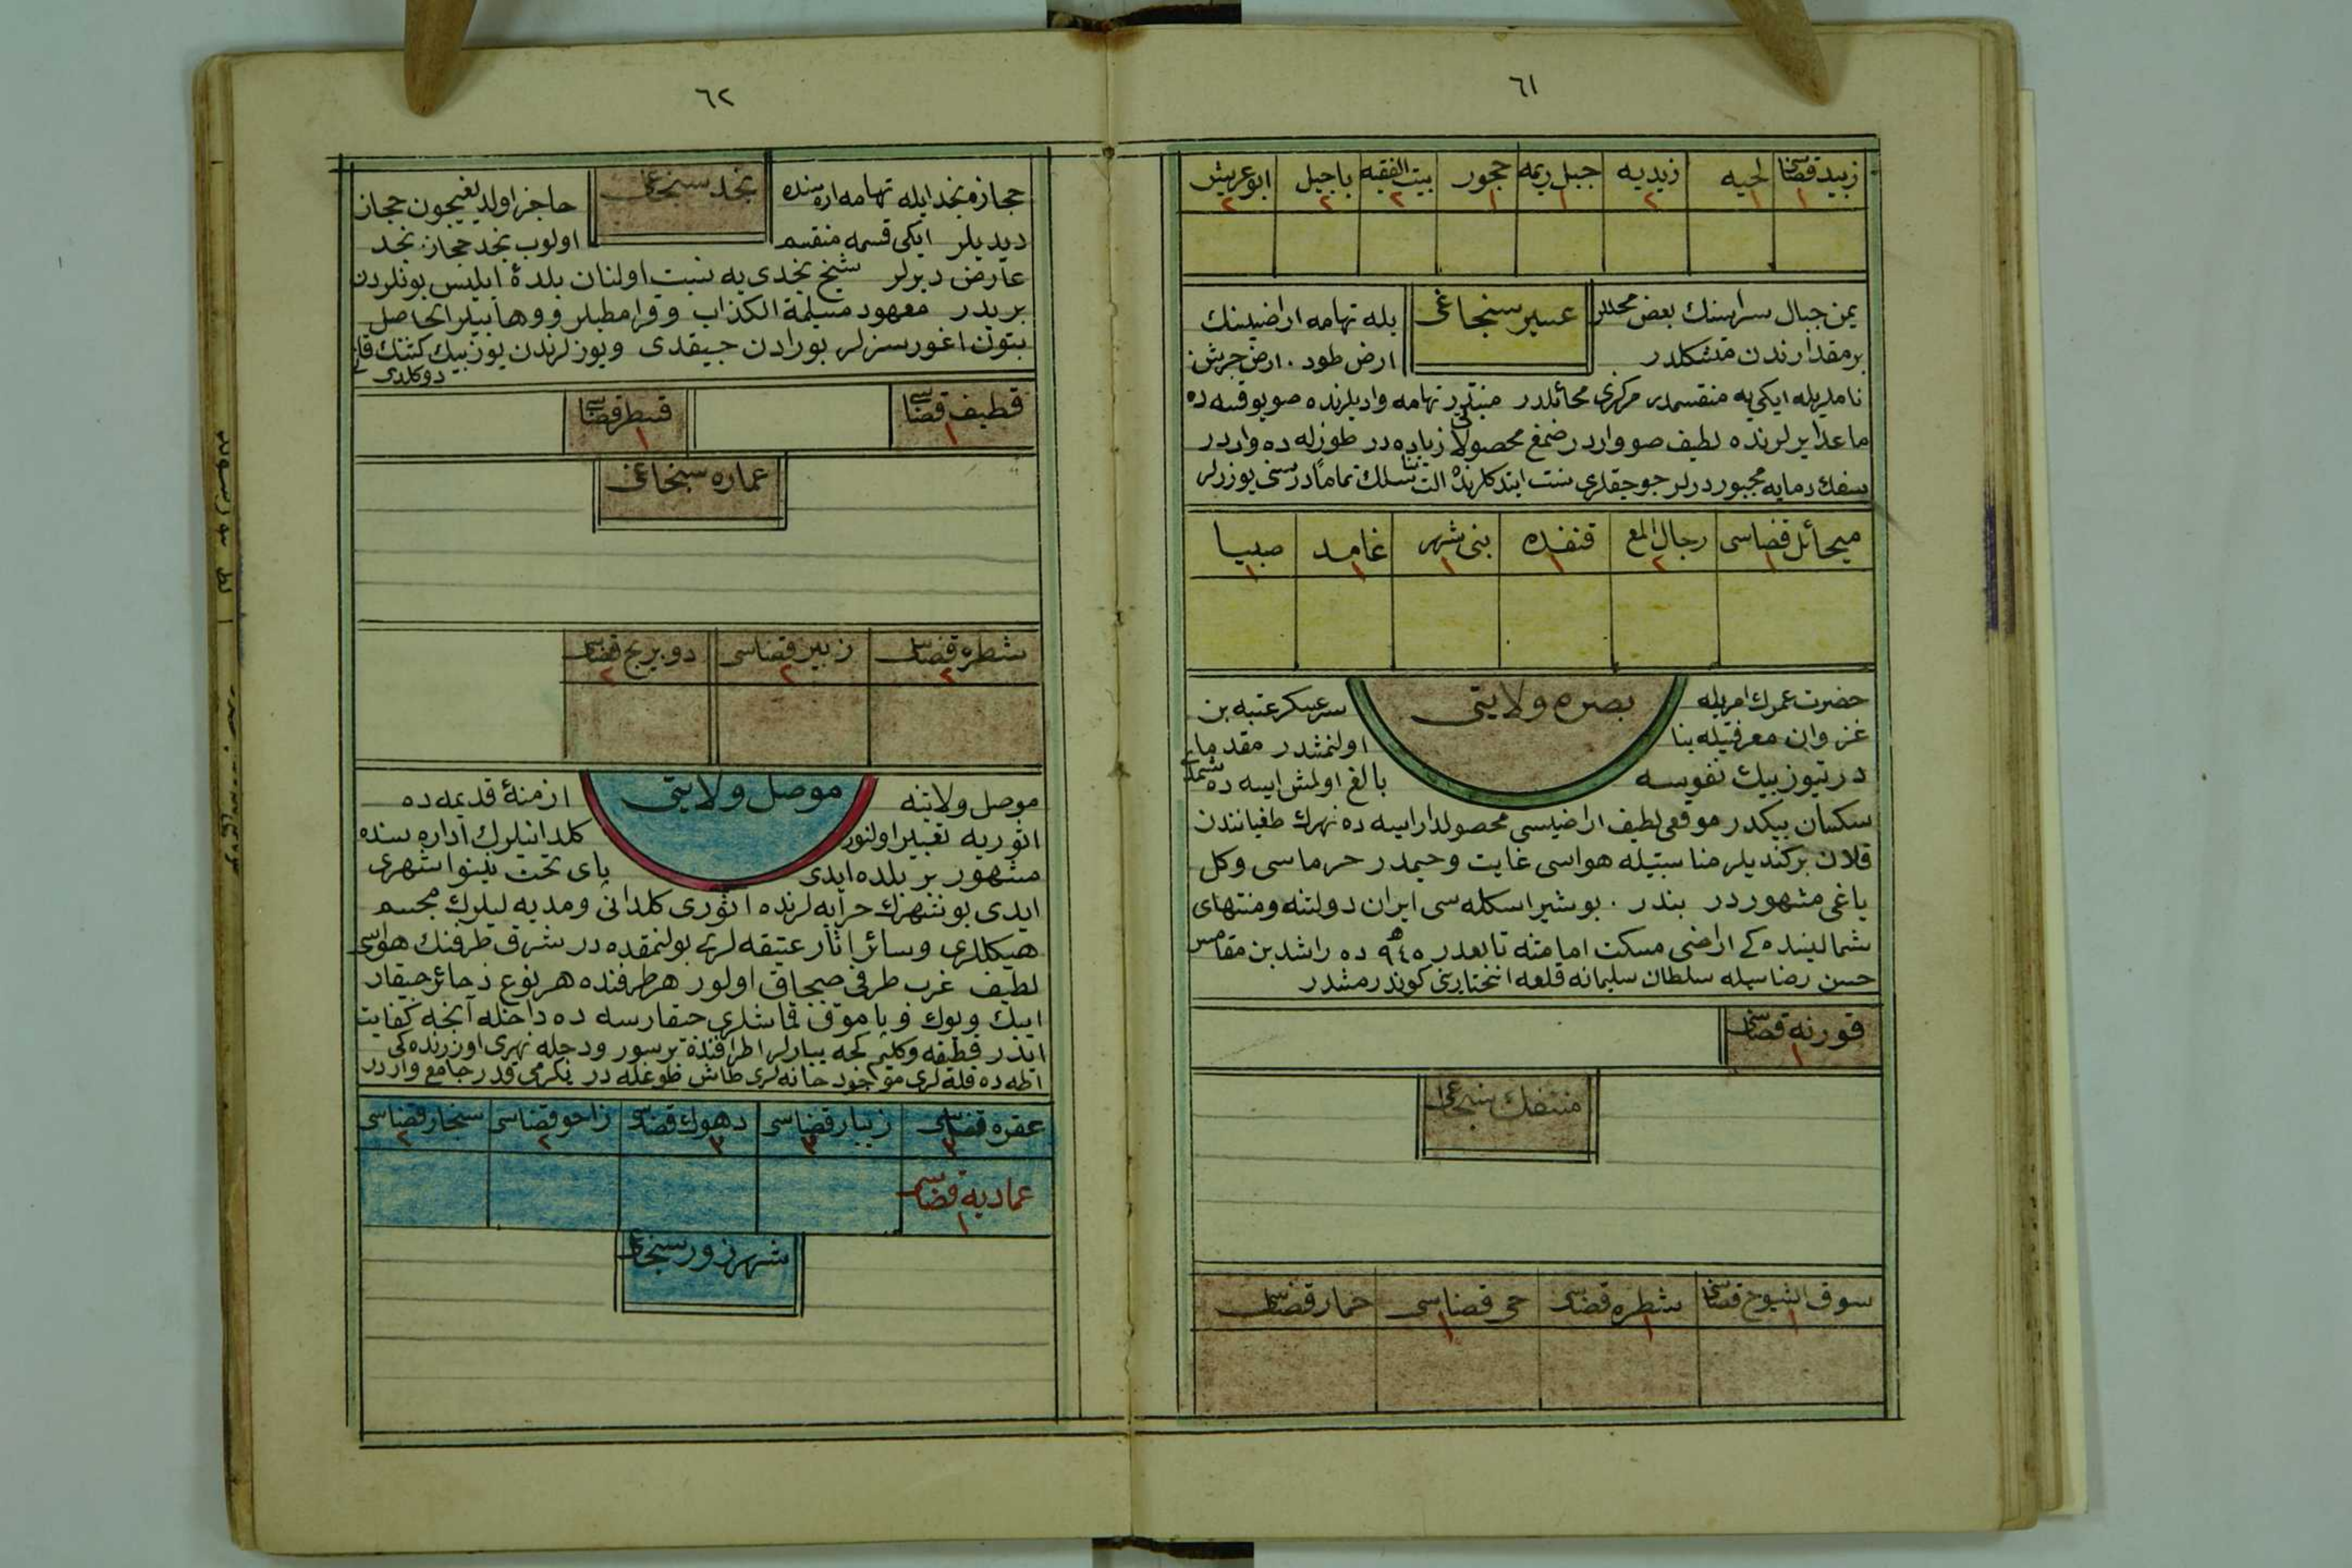 ٦١
زبيد قضاسى لحيه زيديه جبل ريمه حجور بيت الفقيه باجيل ابو عريش
١ ١ ٢ ١ ١ ٢ ٢ ٢
عسير سنجاغى
يمن جبال سراسنك بعض محللر بله تهامه اراضيسنك
بر مقدارندن متشكلدر ارض طود . ارض جرش
ناملريله ايكى يه منقسمدر مركزى محائلدر تهامه واديلرنده صو يوقسه ده
ماعدا يرلرنده لطيف صو واردر صمغ محصولاتى زياده در طوزله ده واردر
سفك دمايه مجبوردرلر چوجقلرى سنت ايتدكلرنده تماماً دريسنى يوزرلر
ميحائل قضاسى رجال المع قنفده بنى شهر غامد صبيا
١ ٢ ١ ١ ١ ١
بصره ولايتى
حضرت عمرك امريله سرعسكر عتبه بن
غزوان معرفتيله بنا اولنمشدر مقدما
درتيوز بيك نفوسه بالغ اولمش ايسه ده شمدى
سكسان بيكدر موقعى لطيف اراضيسى محصولدار ايسه ده نهرك طغيانندن
قلان بركنديلر مناسبتيله هواسى غايت وخيمدر خرماسى وكل
ياغى مشهوردر بندر . بوشير اسكله سى ايران دولتنه ومنتهاى
شمالينده كى اراضى مسكت امامتنه تابعدر ٩٤٥ ده راشد بن مقامس
حسن رضاسيله سلطان سليمانه قلعه انختارينى كوندرمشدر
قورنه قضاسى
١
منتفك سنجاغى
سوق الشيوخ قضاسى شطره قضاسى حى قضاسى حمار قضاسى
١ ١ ١
٦٢
نجد سنجاغى
حجازه نجد ايله تهامه اره سنده حاجز اولديغيچون حجاز
ديديلر ايكى قسمه منقسم اولوب نجد حجاز . نجد
عارض ديرلر شيخ نجدى يه نسبت اولنان بلدۀ ابليس بونلردن
بريدر معهود مسيلمة الكذاب وقرامطيلر ووهابيلر الحاصل
بتون اغورسزلر بورادن چيقدى ويوزلرندن يوز بيك كشينك قانى
دوكلدى
قطيف قضاسى قطر قضاسى
١ ١
عماره سنجاغى
شطره قضاسى زبير قضاسى دويريج قضاسى
٢ ٢ ٢
موصل ولايتى
موصل ولايتنه ازمنۀ قديمه ده
اثوريه تعبير اولنور كلدانيلرك اداره سنده
مشهور بر بلده ايدى پاى تخت نينوا شهرى
ايدى بو شهرك خرابه لرنده اثورى كلدانى ومديه ليلرك مجسم
هيكللرى وسائر اثار عتيقه لرى بولنمقده در شرق طرفنك هواسى
لطيف غرب طرفى صيجاق اولور هر طرفنده هر نوع ذخائر چيقار
ايپك ويوك وپاموق قماشلرى چيقارسه ده داخله آنجه كفايت
ايدر قطيفه وكليم كچه ياپارلر اطرافنده بر سور ودجله نهرى اوزرنده كى
اطه ده قله لرى موجود خانه لرى طاش طوغله در يكرمى قدر جامع واردر
عقره قضاسى زيبار قضاسى دهوك قضاسى زاخو قضاسى سنجار قضاسى
٣ ٣ ٣ ٢ ٢
عماديه قضاسى
١
شهرزور سنجاغى